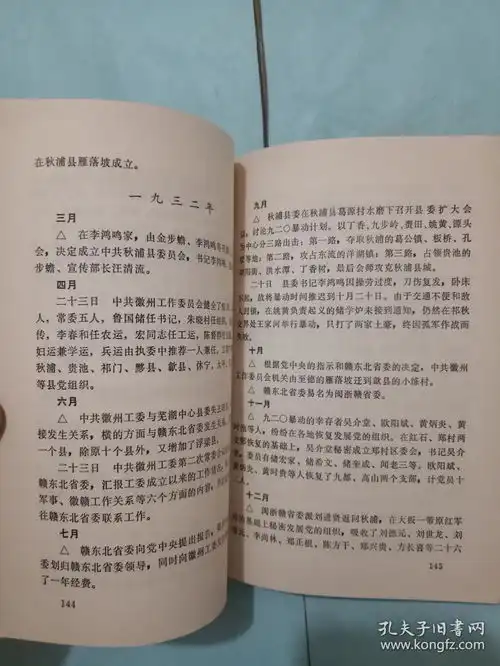 在秋浦县雁落坡成立。
一九三二年
三月
△ 在李鸿鸣家，由金步蟾、李鸿鸣
会，决定成立中共秋浦县委员会，书记李鸿
步蟾、宣传部长汪清流。
四月
二十三日 中共徽州工作委员会健全了
人，常委五人，鲁国储任书记，朱晓村任组
传，李春和任农运，宏同志任工运，陈
妇运兼学运，兵运由执委中推荐一人兼任，
秋浦、贵池、祁门、黟县、歙县、休宁、太平
县党组织。
六月
△ 中共徽州工委与芜湖中心县委失
接发生关系，横的方面与赣东北省委发生关系
一个县，除原十个县外，又增加了浮梁县。
二十三日 中共徽州工委第二次常委会
赣东北省委，汇报工委成立以来的工作情
军事、徽赣工作关系等六个方面的内容，
往赣东北省委联系工作。
七月
△ 赣东北省委向党中央提出报告，
委划归赣东北省委领导，同时向徽州工委
了一年经费。
144
九月
△ 秋浦县委在秋浦县葛源村水磨下召开县委扩大会
议，讨论九二〇暴动计划。以丁香、九步岭、贵田、姚黄、源头
为中心分三路出击：第一路，夺取香口的葛公镇、板桥、孔
等地；第二路，攻占东流的洋湖镇；第三路，占领贵池的
田、洪水潭、丁香树，最后会师攻克秋浦县城。
二十日 县委书记李鸿鸣因操劳过度，刀伤复发，卧床
起，故将暴动时间推迟到十月二十日。由于交通不便和敌
人封锁，在姚黄负责起义的储学炉未接到通知，仍然在祁秋
交界处王家河举行暴动，只打了两家土豪，终因孤军作战而
失败。
十月
△ 根据党中央的指示和赣东北省委的决定，中共徽州
工作委员会机关由至德的雁落坡迁到歙县的小练村。
△ 赣东北省委易名为闽浙赣省委。
十一月
△ 九二〇暴动的幸存者吴介堂、欧阳斌、黄炳炎、黄时
贵等人，纷纷在各地恢复发展党的组织。在红石、郑村两
支部恢复的基础上，吴介堂秘密成立郑村区委会，书记吴介
堂，委员有储宏家、储希文、储奎成、闻老三等。欧阳斌、
黄炳炎、黄时贵等人又恢复了九都，高山两个支部，计党员十
十二月
△ 闽浙赣省委派刘进贤返回秋浦，在大板一带原红军
的基础上秘密发展党的组织，吸收了刘德元、刘世龙、刘
元、李尚林、郑正根、陈方干、郑兴贵、方长喜等二十六
145
孔夫子旧书网
www.kongfz.com